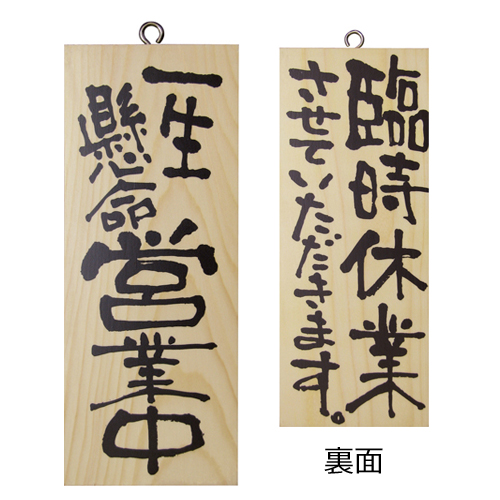 一生
懸命
営業中
臨時休業
させていただきます。
裏面